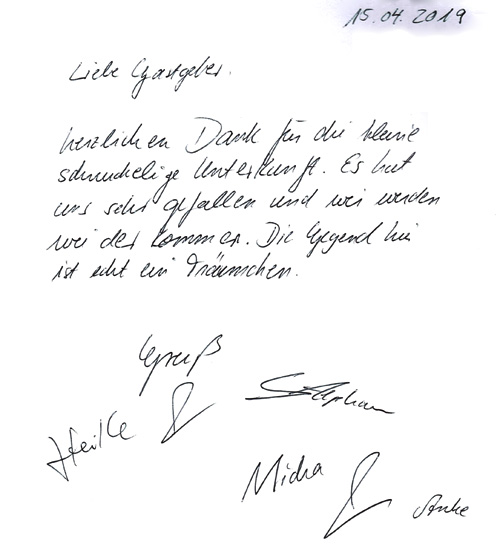 15.04.2019
Liebe Gastgeber.
herzlichen Dank für die kleine
schnuckelige Unterkunft. Es hat
uns sehr gefallen und wir werden
wieder kommen. Die Gegend hier
ist echt ein Träumchen.
Gruß
Heike & Stephan
Micha & Anke